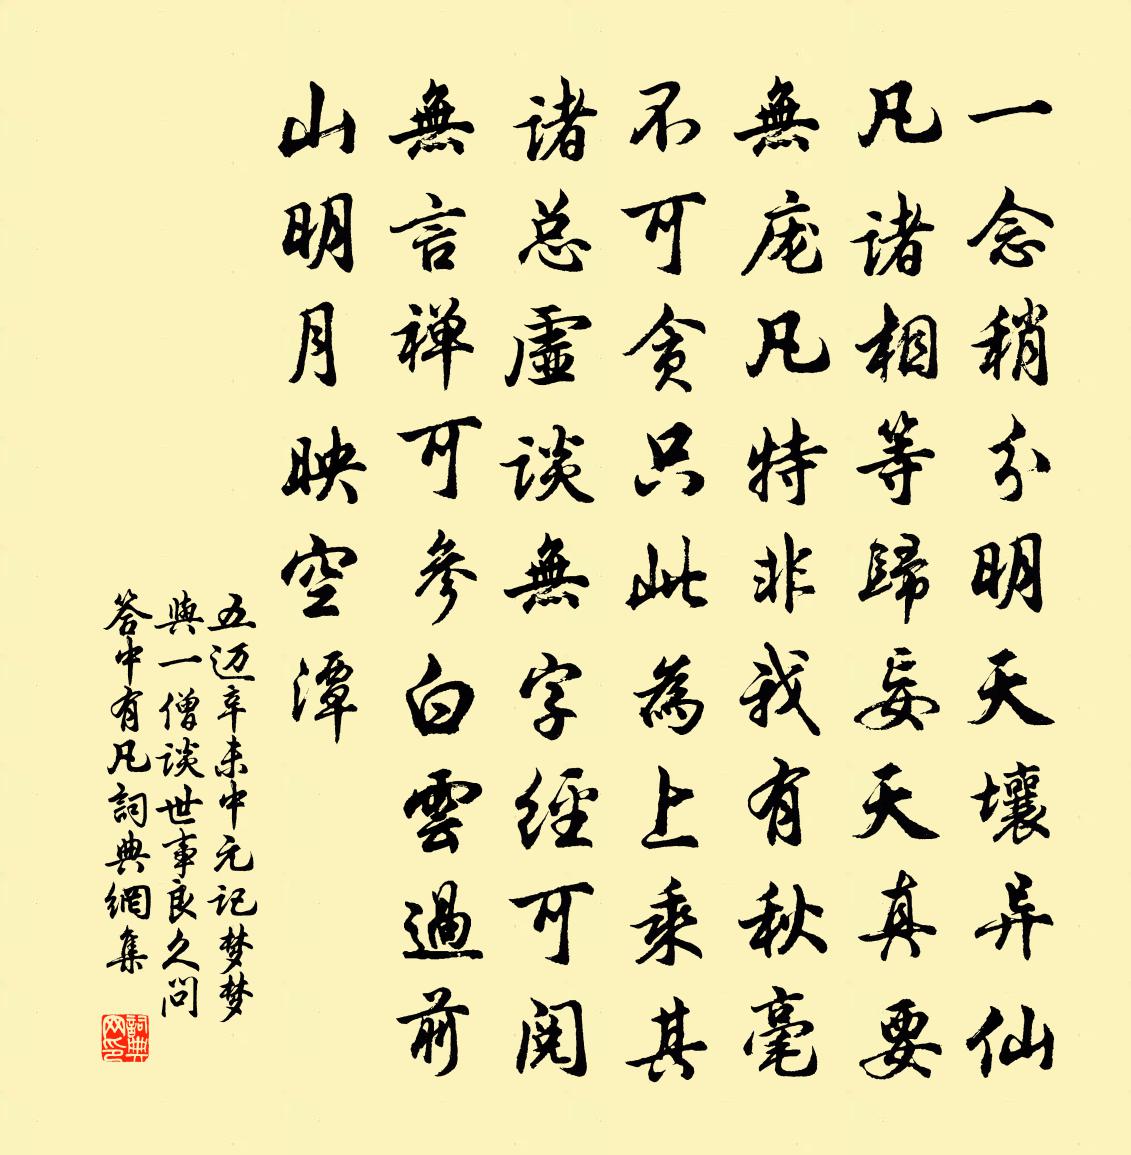 一念稍分明天壤异仙
凡诸相等歸妄天真要
無庞凡特非我有秋毫
不可贪只此為上乘其
诸总虚谈無字經可阅
無言禅可参白雲過前
山明月映空潭
五迈辛未中元记梦梦
與一僧谈世事良久问
答中有凡詞典網集
詞典
网印